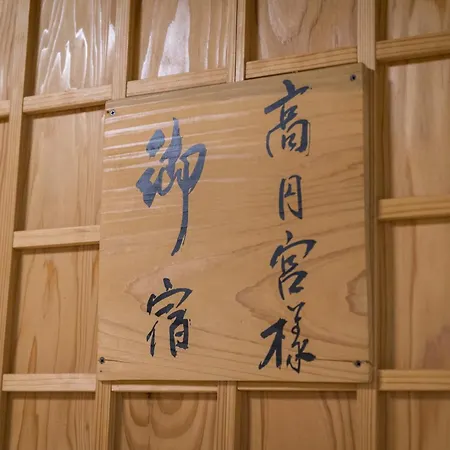 高円宮様
御宿